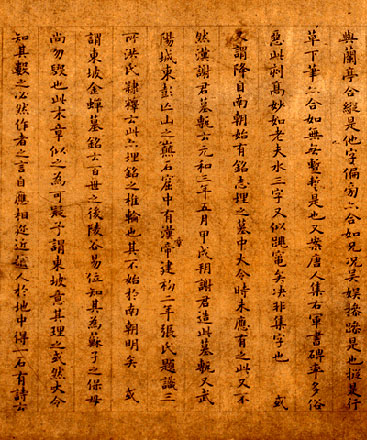 與蘭亭合縱是他字偏旁亦合如兄況吳娛是也恆是行
草下筆亦合如無安暫哉是也又案唐人集右軍書碑率多俗
惡此刻高妙如老夫水三字又似矣决非集字也 或
又謂降自南朝始有銘志埋之墓中大令時未應有之此又不
然漢謝君墓甎云元和三年五月甲戌朔謝君造此墓甎又武
陽城東彭亡山之巔石窟中有漢章帝建初二年張氏題識三
所洪氏隸釋云此亦埋銘之椎輪也其不始於南朝明矣 或
謂東坡金蟬墓銘云百世之後陵谷易位知其為蘇子之保母
尚勿毀也此末章似之為可疑予謂東坡意其理之或然大令
知其數之必然作者之言自應相近越人於地中得一石有詩云